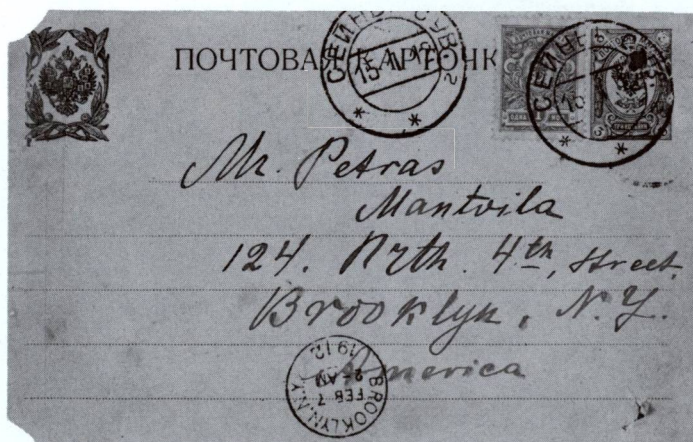 ПОЧТОВАЯ КАРТОЧК
СЕЙНЫ СУВ
Mr. Petras
Mantvila
124. Nrth. 4th, Street.
Brooklyn, N.Y.
America
BROOKLYN, N.Y.
FEB 7
2-AM
1912